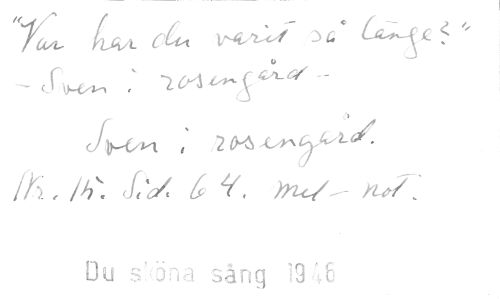 "Var har du varit så länge?"
- Sven i rosengård -
Sven i rosengård.
Nr. 15. Sid. 64. mel - not.
Du sköna sång 1946